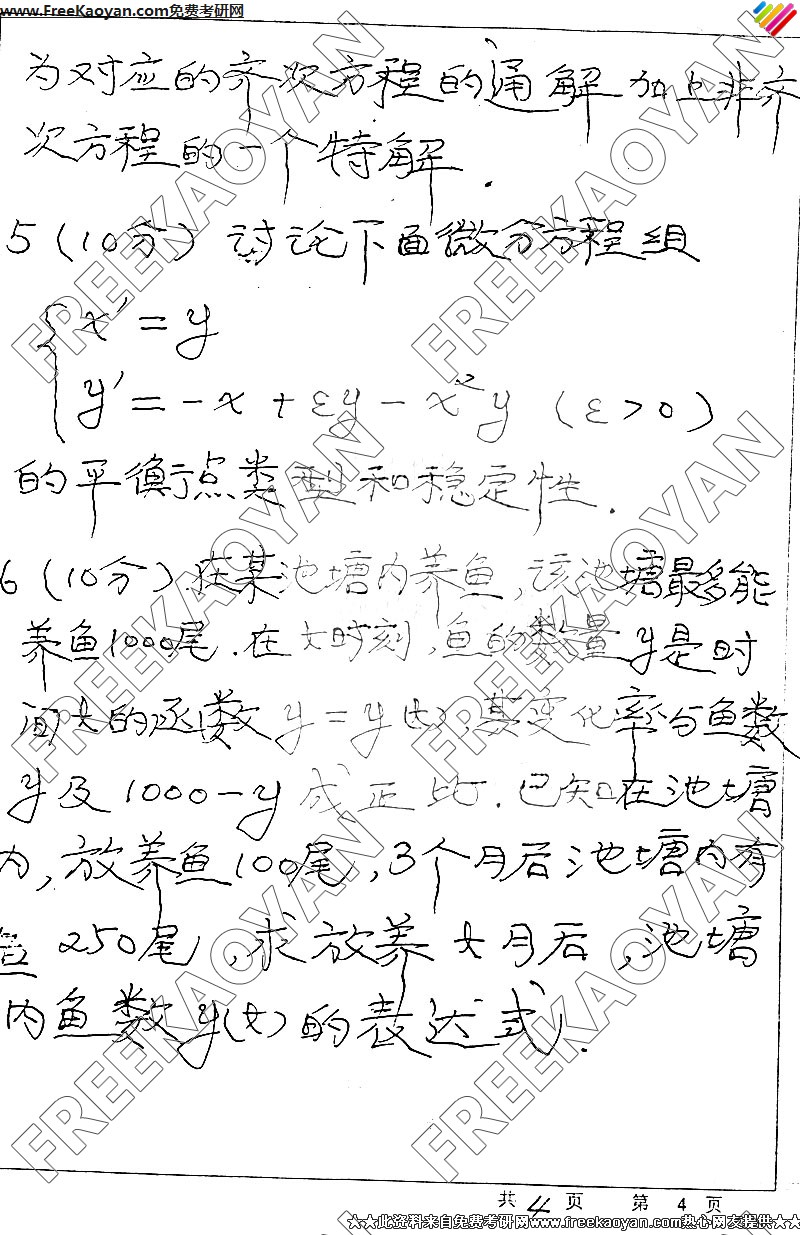 www.FreeKaoyan.com免费考研网
为对应的齐次方程的通解加上非齐
次方程的一个特解.
5(10分)讨论下面微分方程组
x′=y
y′=-x+εy-x²y (ε>0)
的平衡点类型和稳定性.
6(10分).在某池塘内养鱼,该池塘最多能
养鱼1000尾.在t时刻,鱼的数量y是时
间t的函数y=y(t),其变化率与鱼数
y及1000-y成正比.已知在池塘
内,放养鱼100尾,3个月后池塘内有
鱼250尾,求放养t月后,池塘
内鱼数y(t)的表达式.
共4页 第4页
★★此资料来自免费考研网www.freekaoyan.com热心网友提供★★
FREEKAOYAN
FREEKAOYAN
FREEKAOYAN
FREEKAOYAN
FREEKAOYAN
FREEKAOYAN